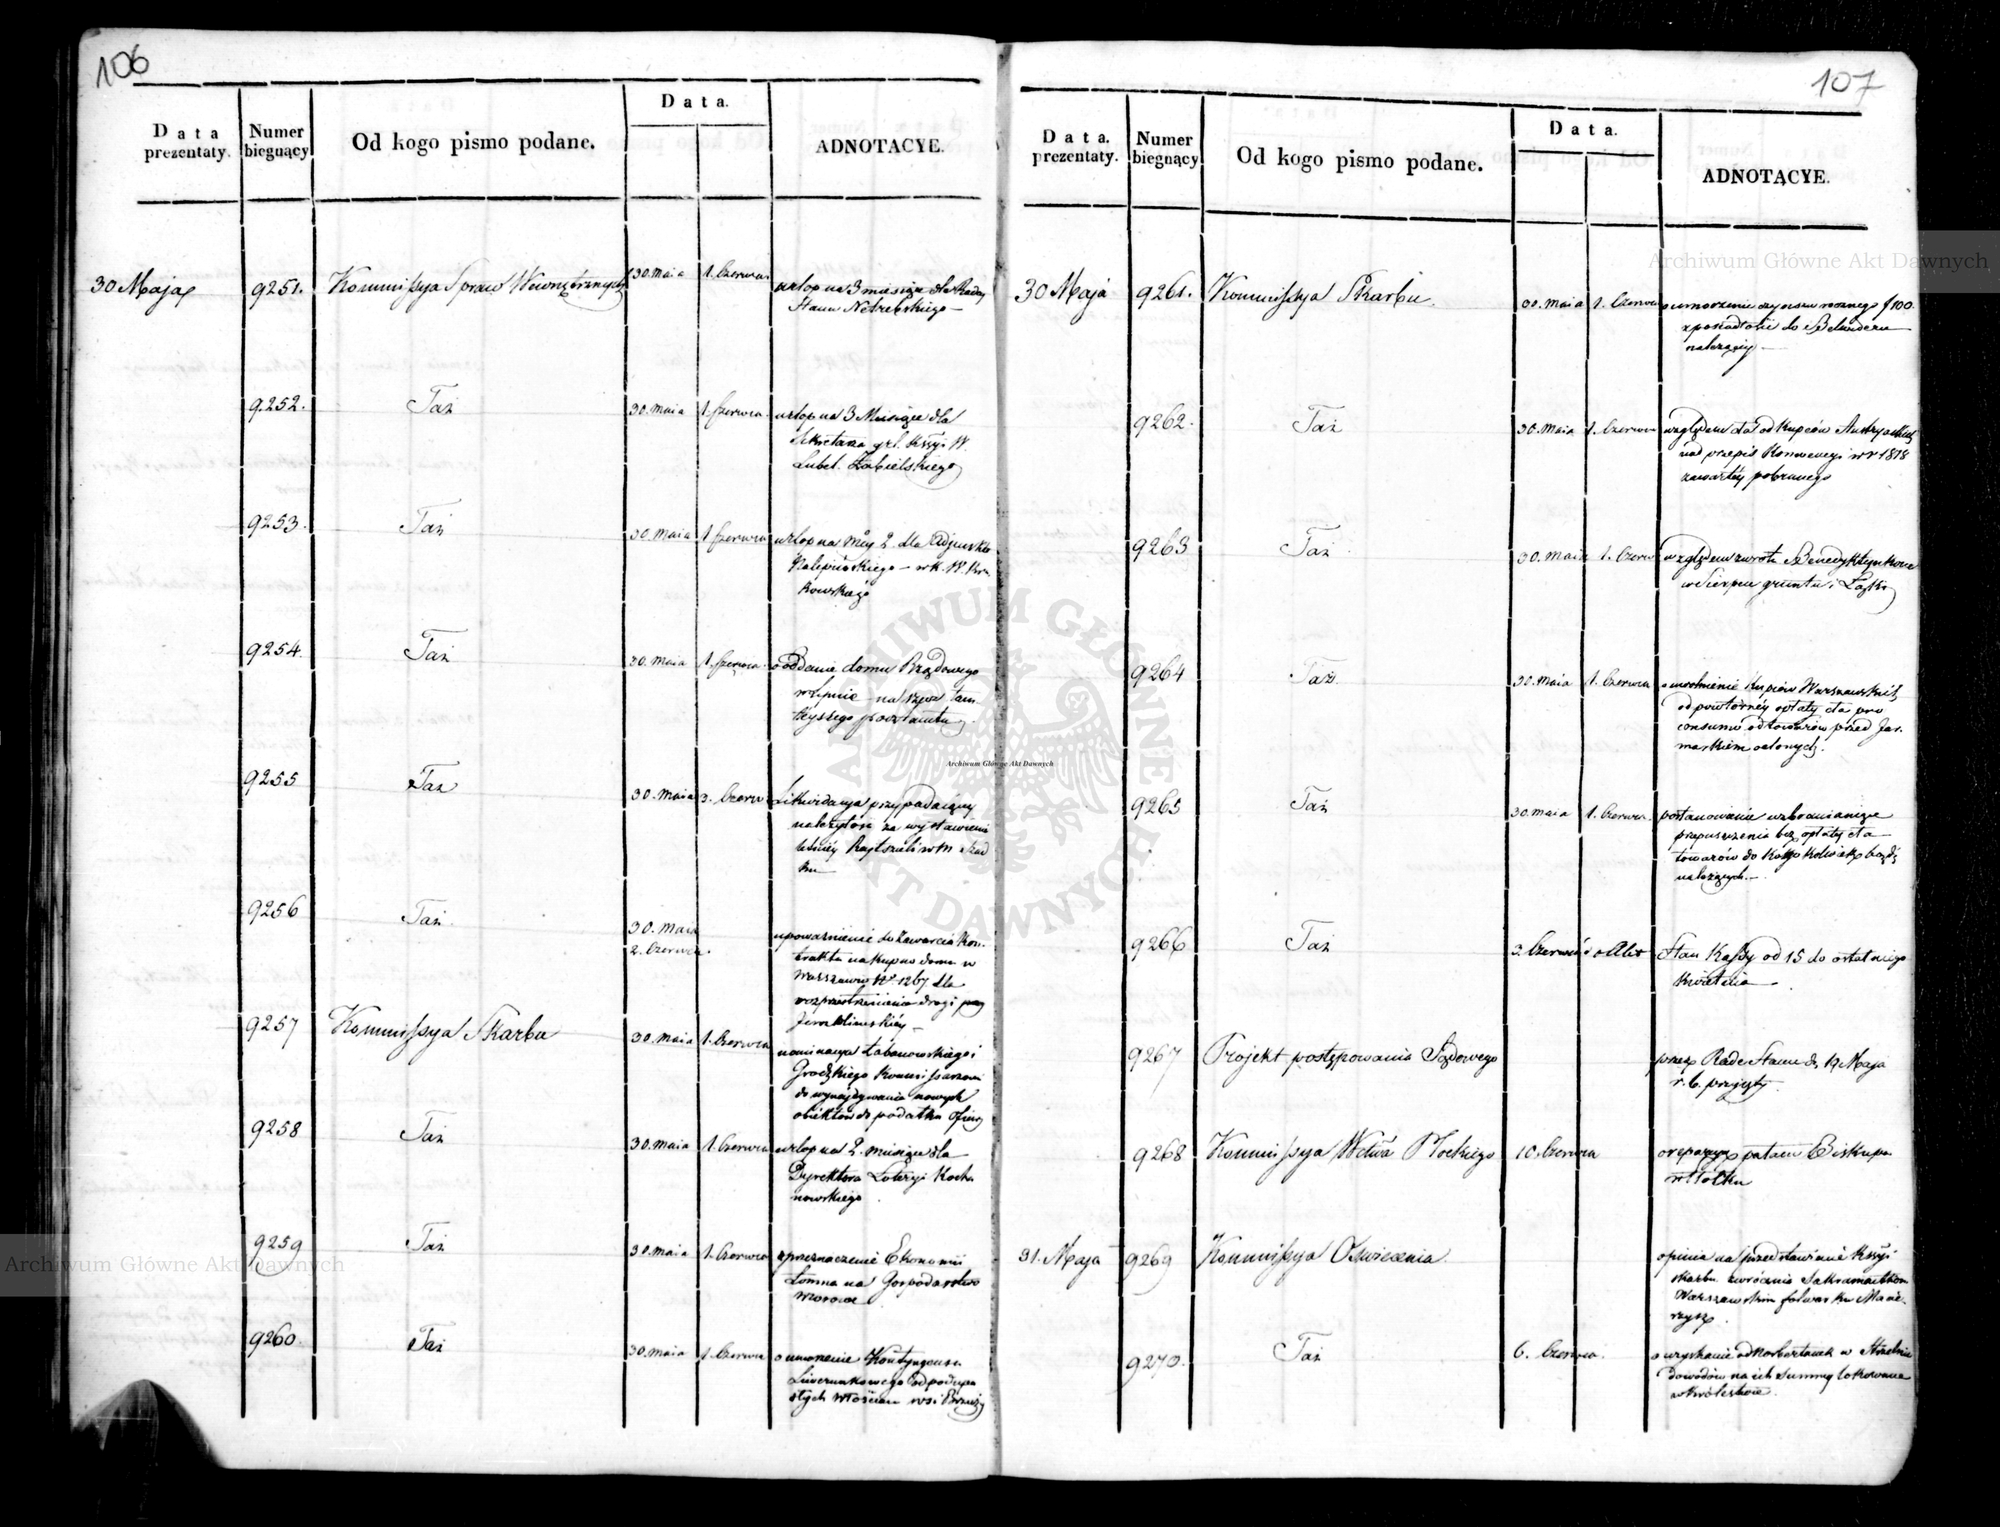 106
Data prezentaty.
Numer biegnący
Od kogo pismo podane.
Data.
ADNOTACYE.
30 Maja
9251.
Kommissya Spraw Wewnętrznych
30. Maia
1. Czerwca
urlop na 3 miesiące dla Radcy
Stanu
9252.
Taż
30. Maia
1. Czerwca
urlop na 3 Miesiące dla
Sekretarza
Lubel.
9253.
Taż
30. Maia
1. Czerwca
urlop na
dla Adjunkta
kowskiego
9254.
Taż
30. Maia
1. Czerwca
oddanie domu Rządowego
na rzecz tam
9255
Taż
30. Maia
3. Czerw.
Likwidacya przypadaiącey
należytości za wystawienie
9256
Taż.
30. Maia
2. Czerwca.
upoważnienie do zawarcia kon-
traktu na kupno domu w
Warszawie No 1267 dla
rozprzestrzenienia drogi przy
9257
Kommissya Skarbu
30. Maia
1. Czerwca
nominacya Łabanowskiego i
Grodzkiego Kommissarzami
do wynaydywania nowych
obiektów do podatku ofiary
9258
Taż
30. Maia
1. Czerwca
urlop na 2. miesiące dla
Dyrektora Loteryi Kocha
nowskiego
9259
Taż
30. Maia
1. Czerwca
przeznaczenie Ekonomii
Łomna na Gospodarstwo
wzorowe
9260.
Taż
30. Maia
1. Czerwca
o umorzenie Kontyngensu
Liwerunkowego od podupa
dłych włościan wsi
107
Data. prezentaty.
Numer biegnący
Od kogo pismo podane.
Data.
ADNOTACYE.
30 Maja
9261.
Kommissya Skarbu
30. Maia
1. Czerwca
o umorzenie czynszu rocznego f 100
z posiadłości do Belwederu
należącey
9262.
Taż
30. Maia
1. Czerwca
względem cła od kupców Austryackich
nad przepis Konwencyi w r 1818
zawartéy pobranego
9263
Taż
30. Maia
1. Czerw
względem zwrotu Benedyktynkom
w Sierpcu gruntu i Łąki
9264
Taż.
30. Maia
1. Czerwca
o uwolnienie kupców Warszawskich
od powtórney opłaty cła pro
consumo od towarów przed Jar-
markiem oclonych.
9265
Taż
30. Maia
1. Czerwca
postanowienie wzbraniaiące
przepuszczenia bez opłaty cła
towarów do kogo kolwiek bądź
należących.
9266
Taż
3. Czerwca
Stan Kassy od 15 do ostatniego
Kwietnia
9267
Projekt postępowania Sądowego
przez Radę Stanu d. 19 Maja
r. b. przyjęty
9268
Kommissya Wdtwa Płockiego
10. Czerwca
o reparacyę pałacu Biskupa
w Płocku
31. Maja
9269
Kommissya Oświecenia.
opinia na przedstawienie Kssyi
Skarbu zwrócenia Sakramentkom
Warszawskim folwarku
9270.
Taż
6. Czerwca.
o uzyskanie od Norbertanek w Strzelnie
dowodów na ich Summy lokowane
w Królestwie.
Archiwum Główne Akt Dawnych
Archiwum Główne Akt Dawnych
Archiwum Główne Akt Dawnych
ARCHIWUM GŁÓWNE AKT DAWNYCH